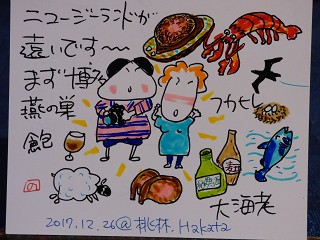 ニュージーランドが
遠いです〜
まず博多
燕の巣
鮑
フカヒレ
大海老
寿
の
2017.12.26@桃杯.Hakata